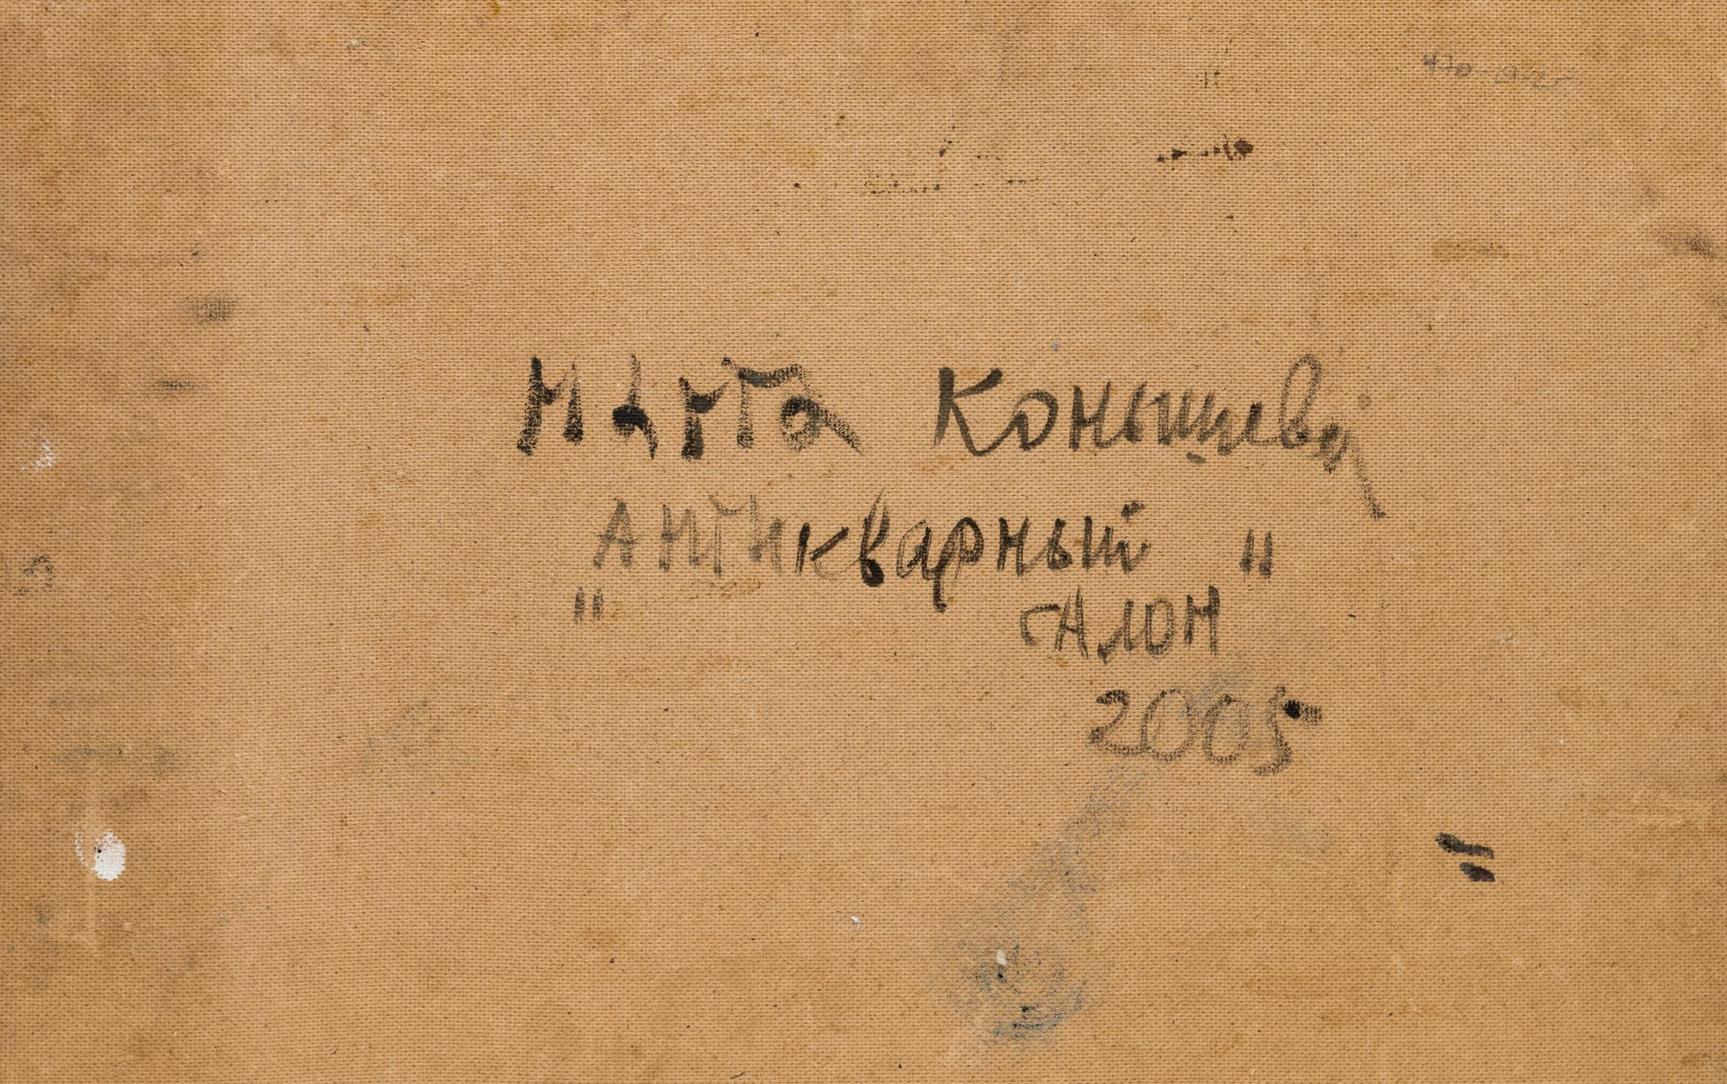 Марта Конышева
Антикварный "
" салон
2005